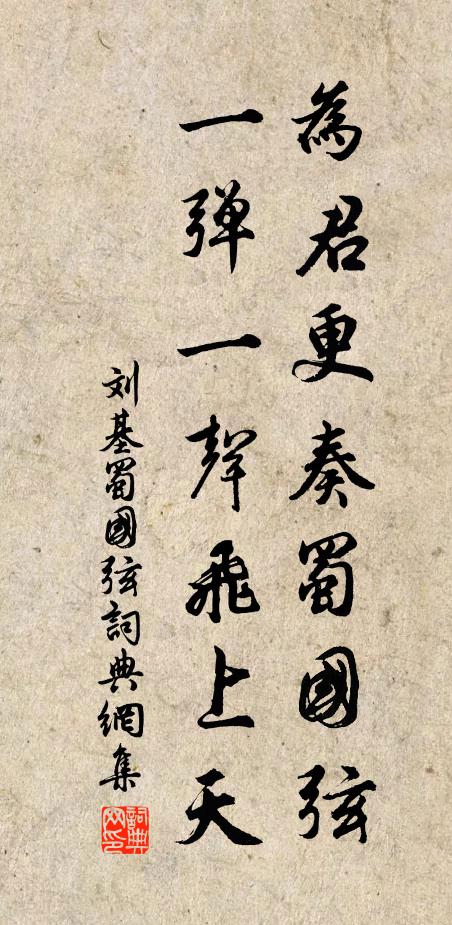 為君更奏蜀國弦
一弹一聲飛上天
刘基蜀國弦詞典網集
詞典网印